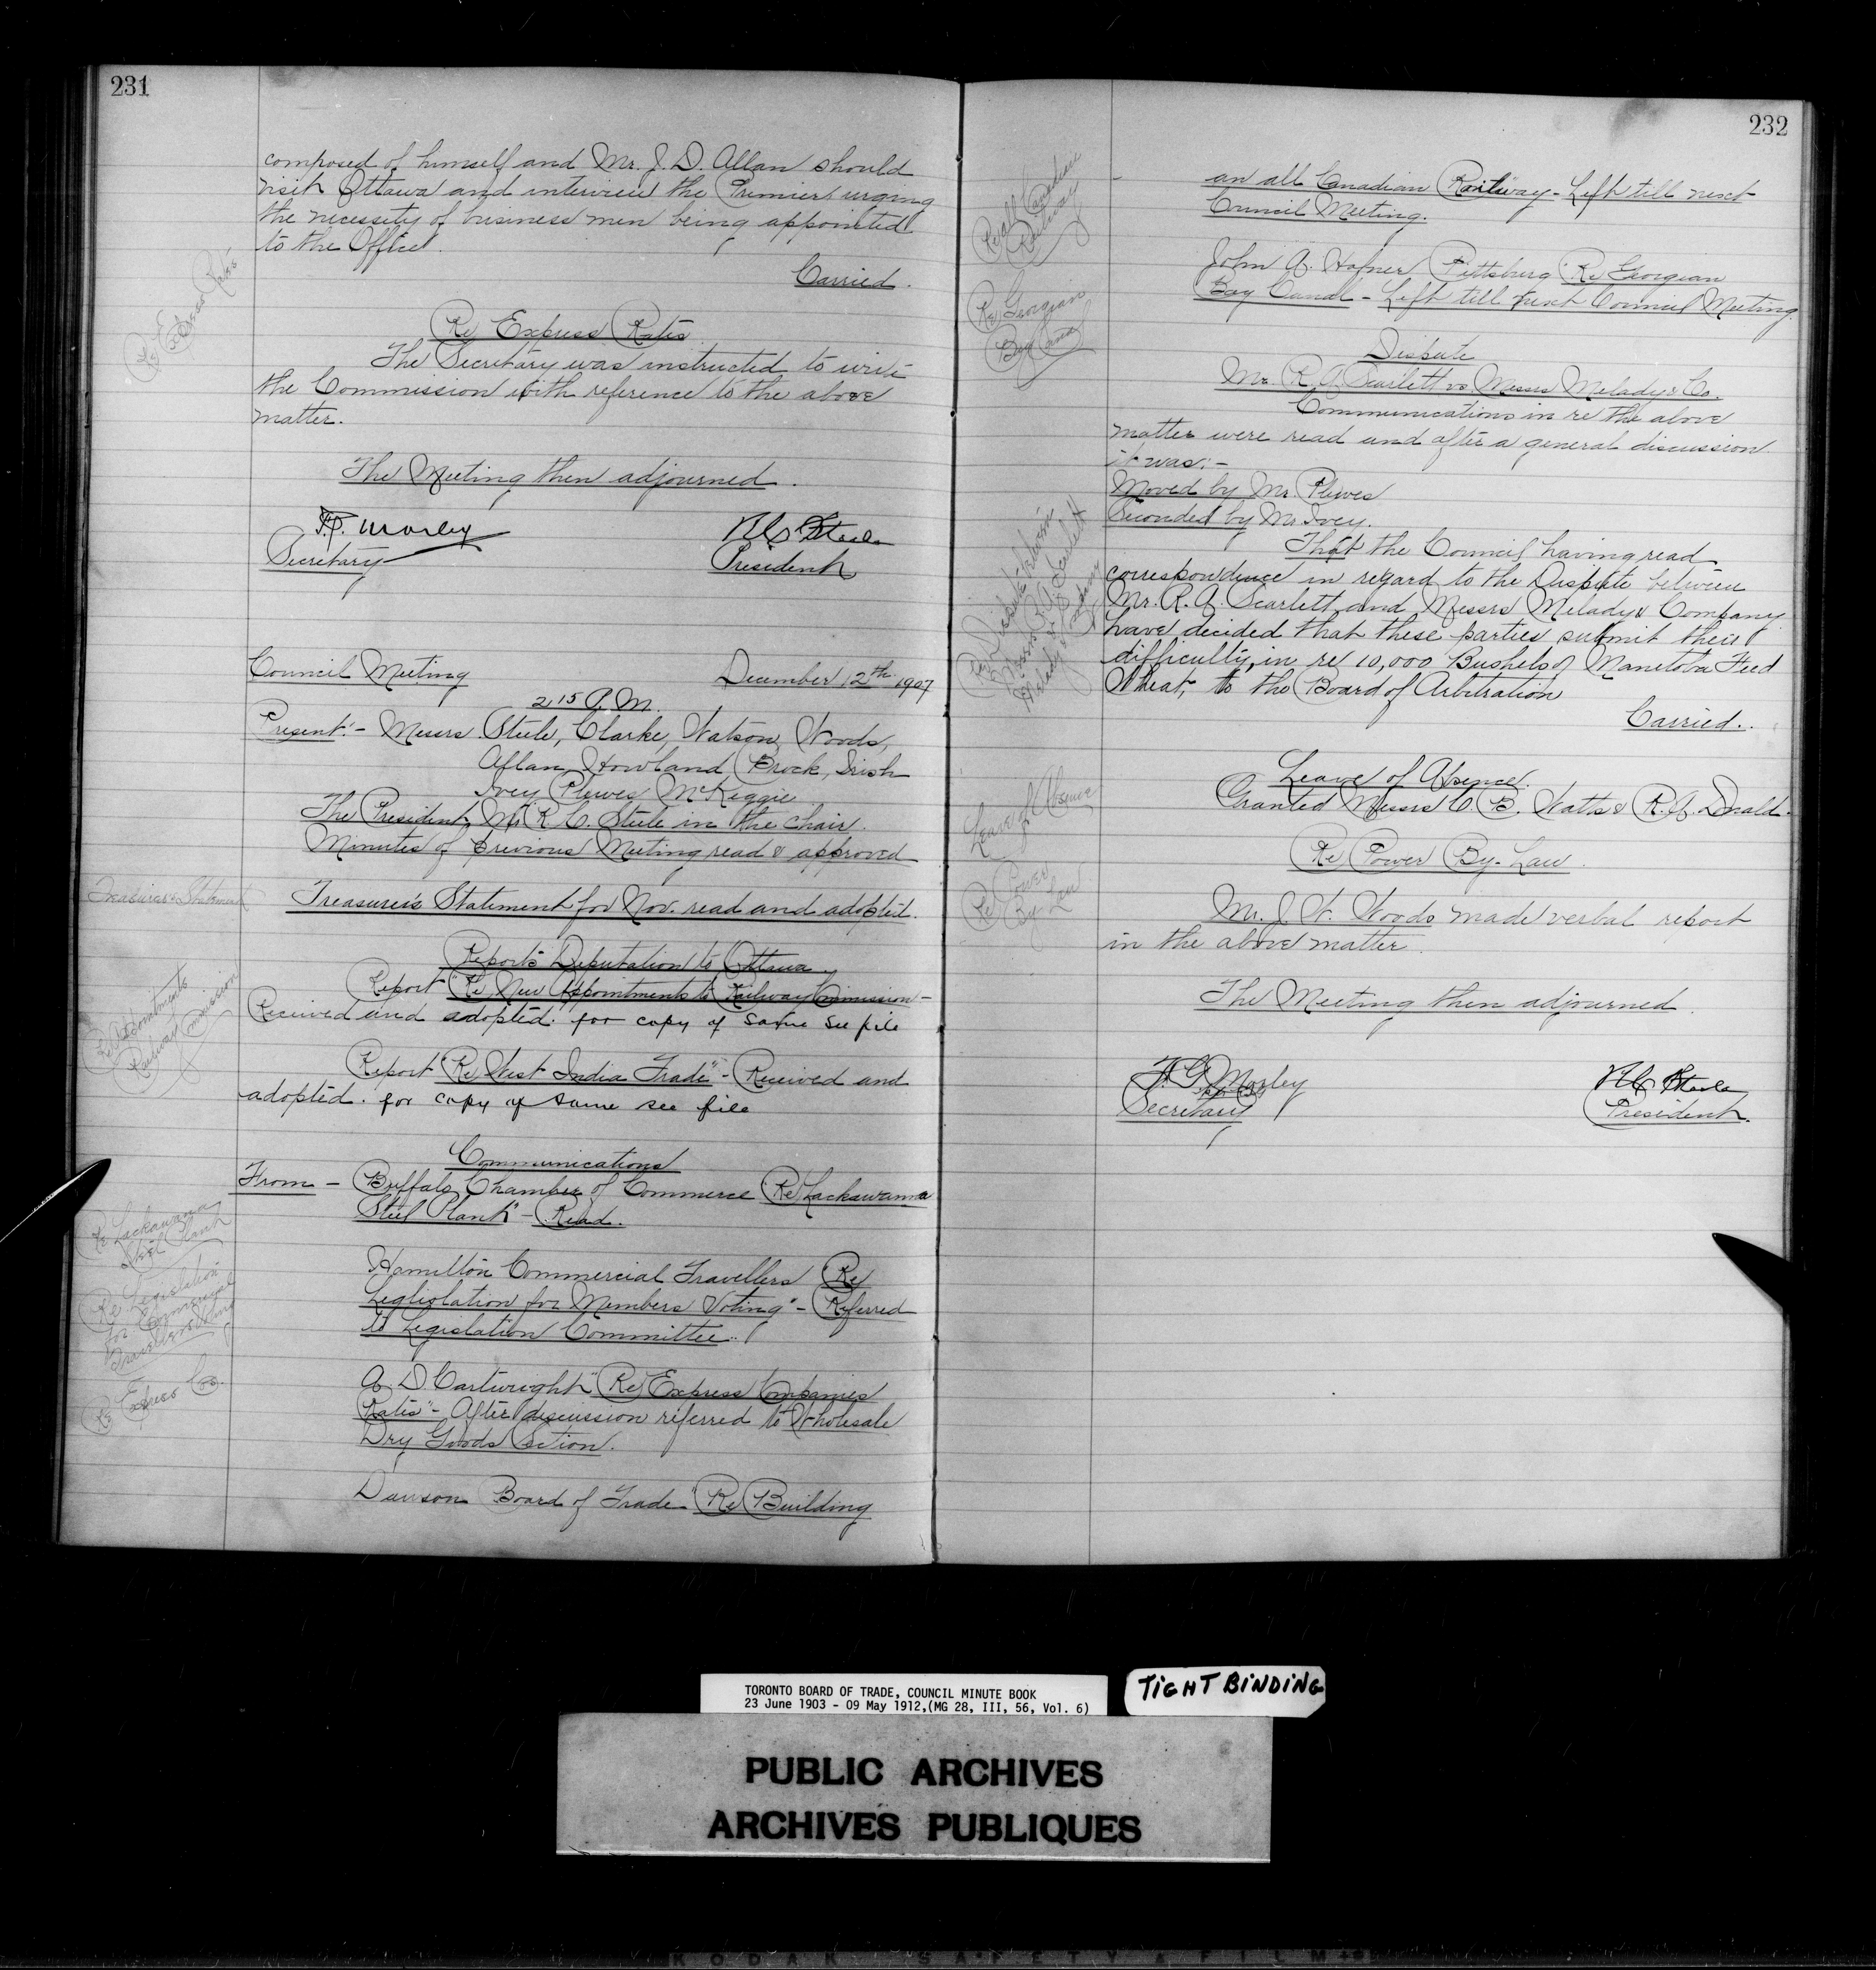 231
composed of himself and Mr. J. D. Allan should
visit Ottawa and interview the Premier urging
the necessity of business men being appointed
to the Office.
Carried.
Re Express Rates
Re Express Rates
The Secretary was instructed to write
the Commission with reference to the above
matter.
The Meeting then adjourned.
F.G. Morley
Secretary
R.C. Steele
President
Council Meeting
December 12th 1907
2 15 P.M.
Present:- Messrs Steele, Clarke, Watson, Woods,
Allan, Howland, Brock, Irish
Ivey Plewes McKeggie
The President Mr R. C. Steele in the chair.
Minutes of previous Meeting read & approved
Treasurer's Statement
Treasurer's Statement for Nov. read and adopted.
Reports Deputation to Ottawa.
Re Appointments
Railway Commission
Report "Re New Appointments to Railway Commission -
Received and adopted. for copy of same see file
Report "Re West India Trade" - Received and
adopted. for copy of same see file
Communications
From - Buffalo Chamber of Commerce "Re Lackawanna
Steel Plant" - Read.
Re Lackawanna
Steel Plant
Hamilton Commercial Travellers "Re
Legislation for Members Voting" - Referred
to Legislation Committee.
Re Legislation
for Commercial
Travellers Voting
A. D. Cartwright "Re Express Companies
Rates" - After discussion referred to Wholesale
Dry Goods Section.
Re Express Cos.
Dawson Board of Trade "Re Building
232
Re all Canadian
Railway
an all Canadian Railway - Left till next
Council Meeting.
Re Georgian
Bay Canal
John A. Hafner Pittsburg Re Georgian
Bay Canal - Left till next Council Meeting.
Dispute
Mr. R. A. Scarlett vs Messrs Melady & Co.
Communications in re the above
matter were read and after a general discussion
it was:-
Moved by Mr Plewes
Seconded by Mr Ivey.
Re Dispute between
Messrs R. A. Scarlett
Melady & Company
That the Council having read
correspondence in regard to the Dispute between
Mr. R. A. Scarlett and Messrs Melady & Company
have decided that these parties submit their
difficulty, in re 10,000 Bushels of Manitoba Feed
Wheat, to the Board of Arbitration
Carried.
Leave of Absence
Leave of Absence.
Granted Messrs C. B. Watts & R. A. Donald.
Re Power
By-Law
Re Power By-Law.
Mr. J. W. Woods made verbal report
in the above matter.
The Meeting then adjourned.
F. G. Morley
Secretary
R.C. Steele
President.
TORONTO BOARD OF TRADE, COUNCIL MINUTE BOOK
23 June 1903 - 09 May 1912,(MG 28, III, 56, Vol. 6)
TIGHT BINDING
PUBLIC ARCHIVES
ARCHIVES PUBLIQUES
KODAK SAFETY FILM